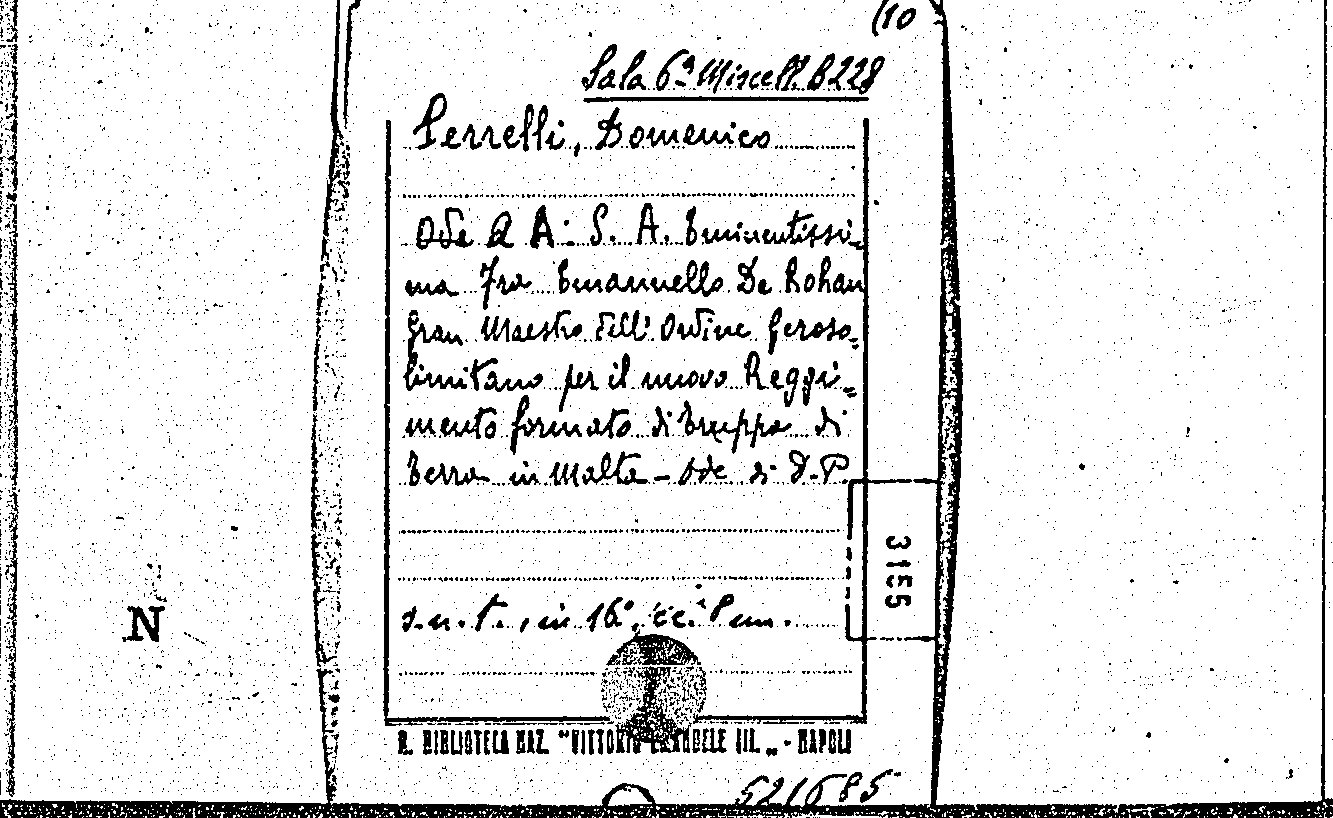 (10
Sala 6ª Miscell. B 228
Perrelli, Domenico
Ode a A. S. A. Eminentissi=
ma Fra Emanuello De Rohan
Gran Maestro dell' Ordine Geroso=
limitano per il nuovo Reggi=
mento formato di truppa di
terra in Malta - Ode di D. P.
3155
s. n. t., in 16°, num.
N
R. BIBLIOTECA NAZ. "VITTORIO EMANUELE III. „ - NAPOLI
521685